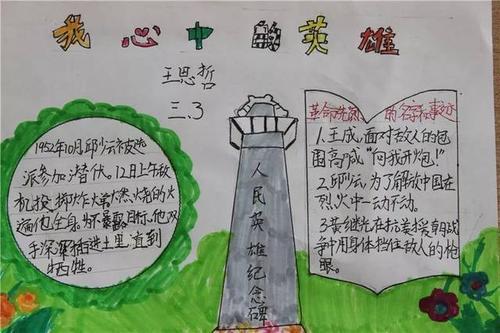 我心中的英雄
王思哲
三.3
1952年10月邱少云被选
派参加潜伏。12日上午敌
机投掷炸弹燃烧的火
遍他全身。为不暴露目标,他双
手深深插进土里直到
牺牲。
人民英雄纪念碑
革命先烈的名字和事迹
1.王成,面对敌人的包
围高喊"向我开炮!"
2.邱少云,为了解放中国在
烈火中一动不动。
3.黄继光在抗美援朝战
争中用身体档住敌人的炮
眼。